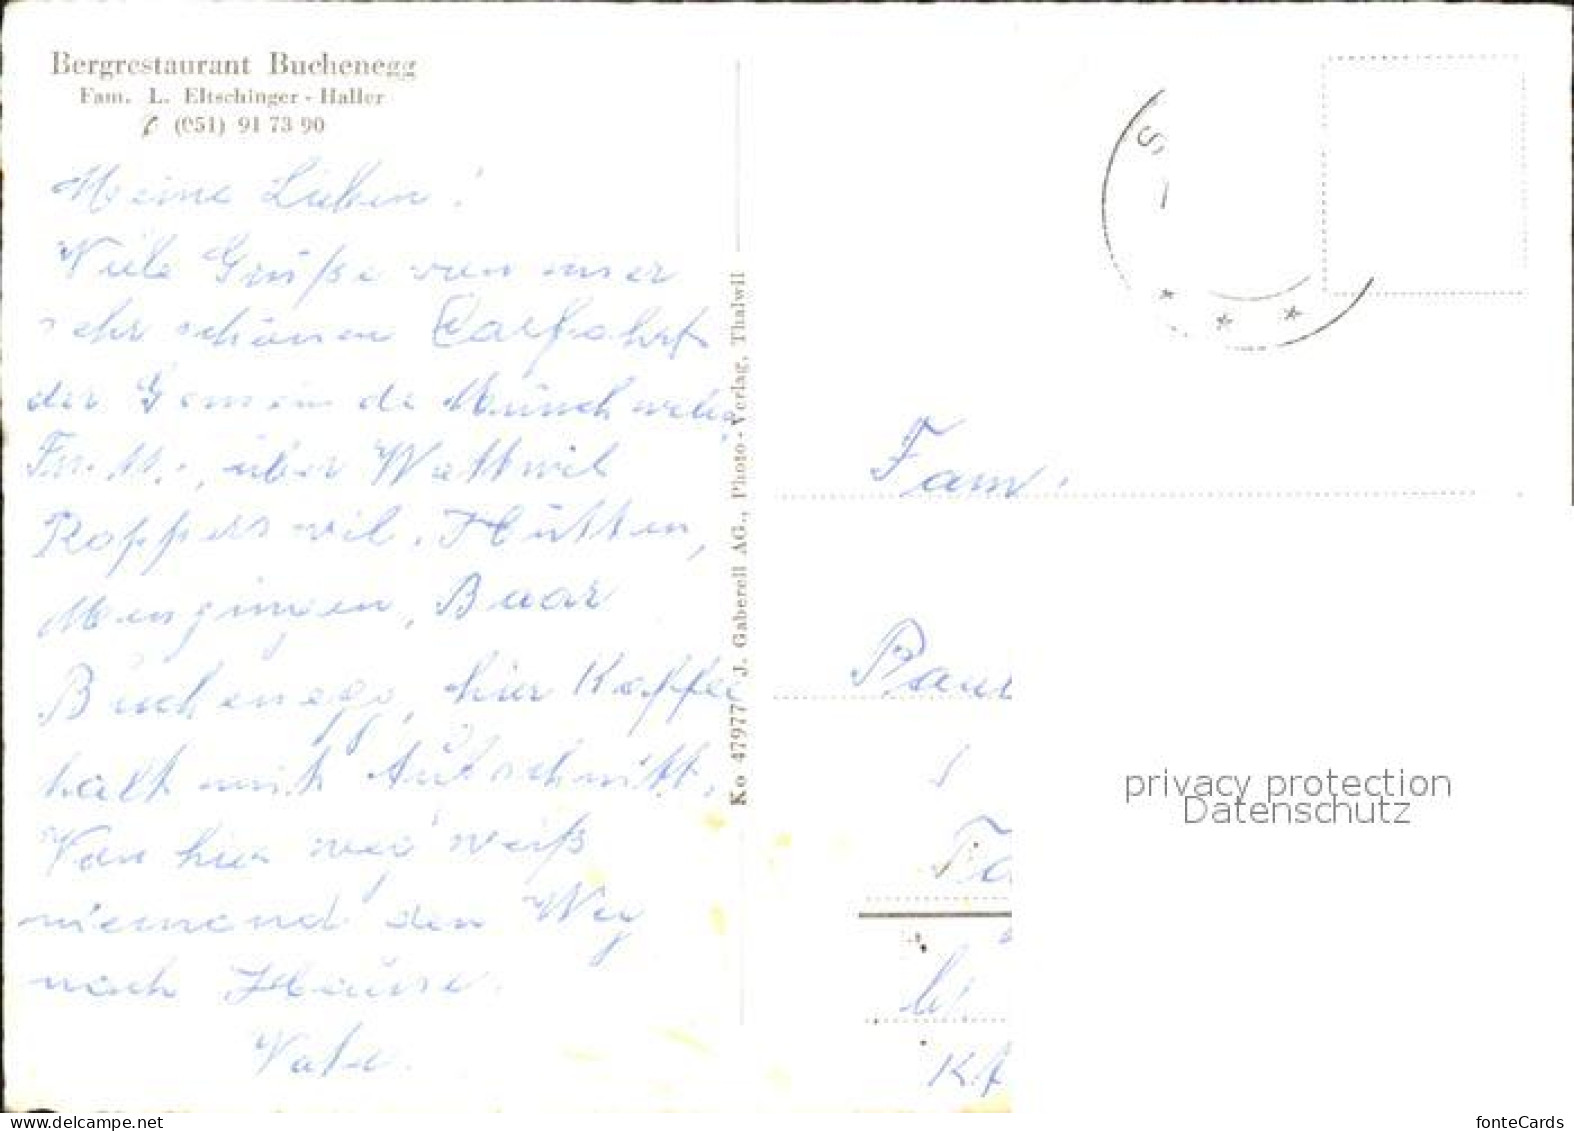 Bergrestaurant Buchenegg
Fam. L. Eltschinger - Haller
(051) 91 73 90
Meine Lieben!
Viele Grüße von unser
sehr schönen Carfahrt
der Gemeinde Münchwilen
über Wattwil
Rapperswil, Hütten,
Menzingen, Baar
Buchenegg, hier Kaffee
halt mit Aufschnitt.
Von hier weg weiß
niemand den Weg
nach Hause.
Vater.
Ko 47977 J. Gaberell AG., Photo-Verlag, Thalwil
S
Fam.
Paul
privacy protection
Datenschutz
Kt
www.delcampe.net
fonteCards